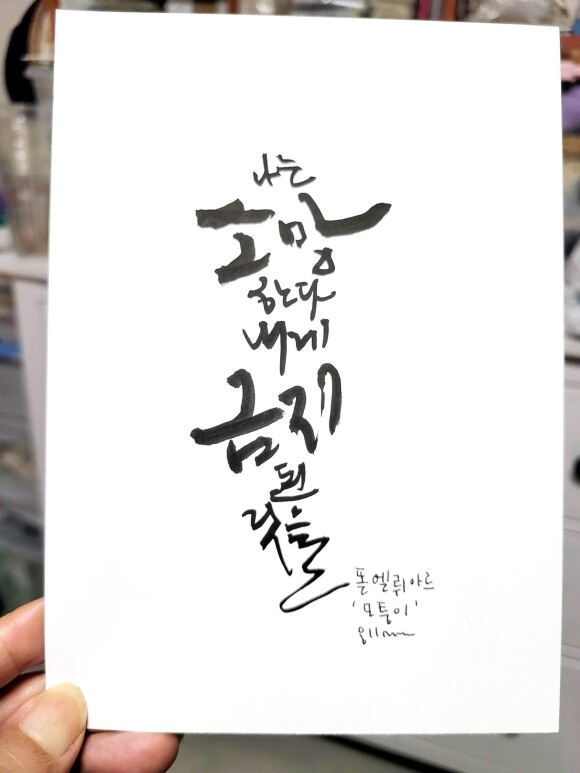 나는
소망
한다
내게
금지
된
것을
폴 엘뤼아르
'모퉁이'